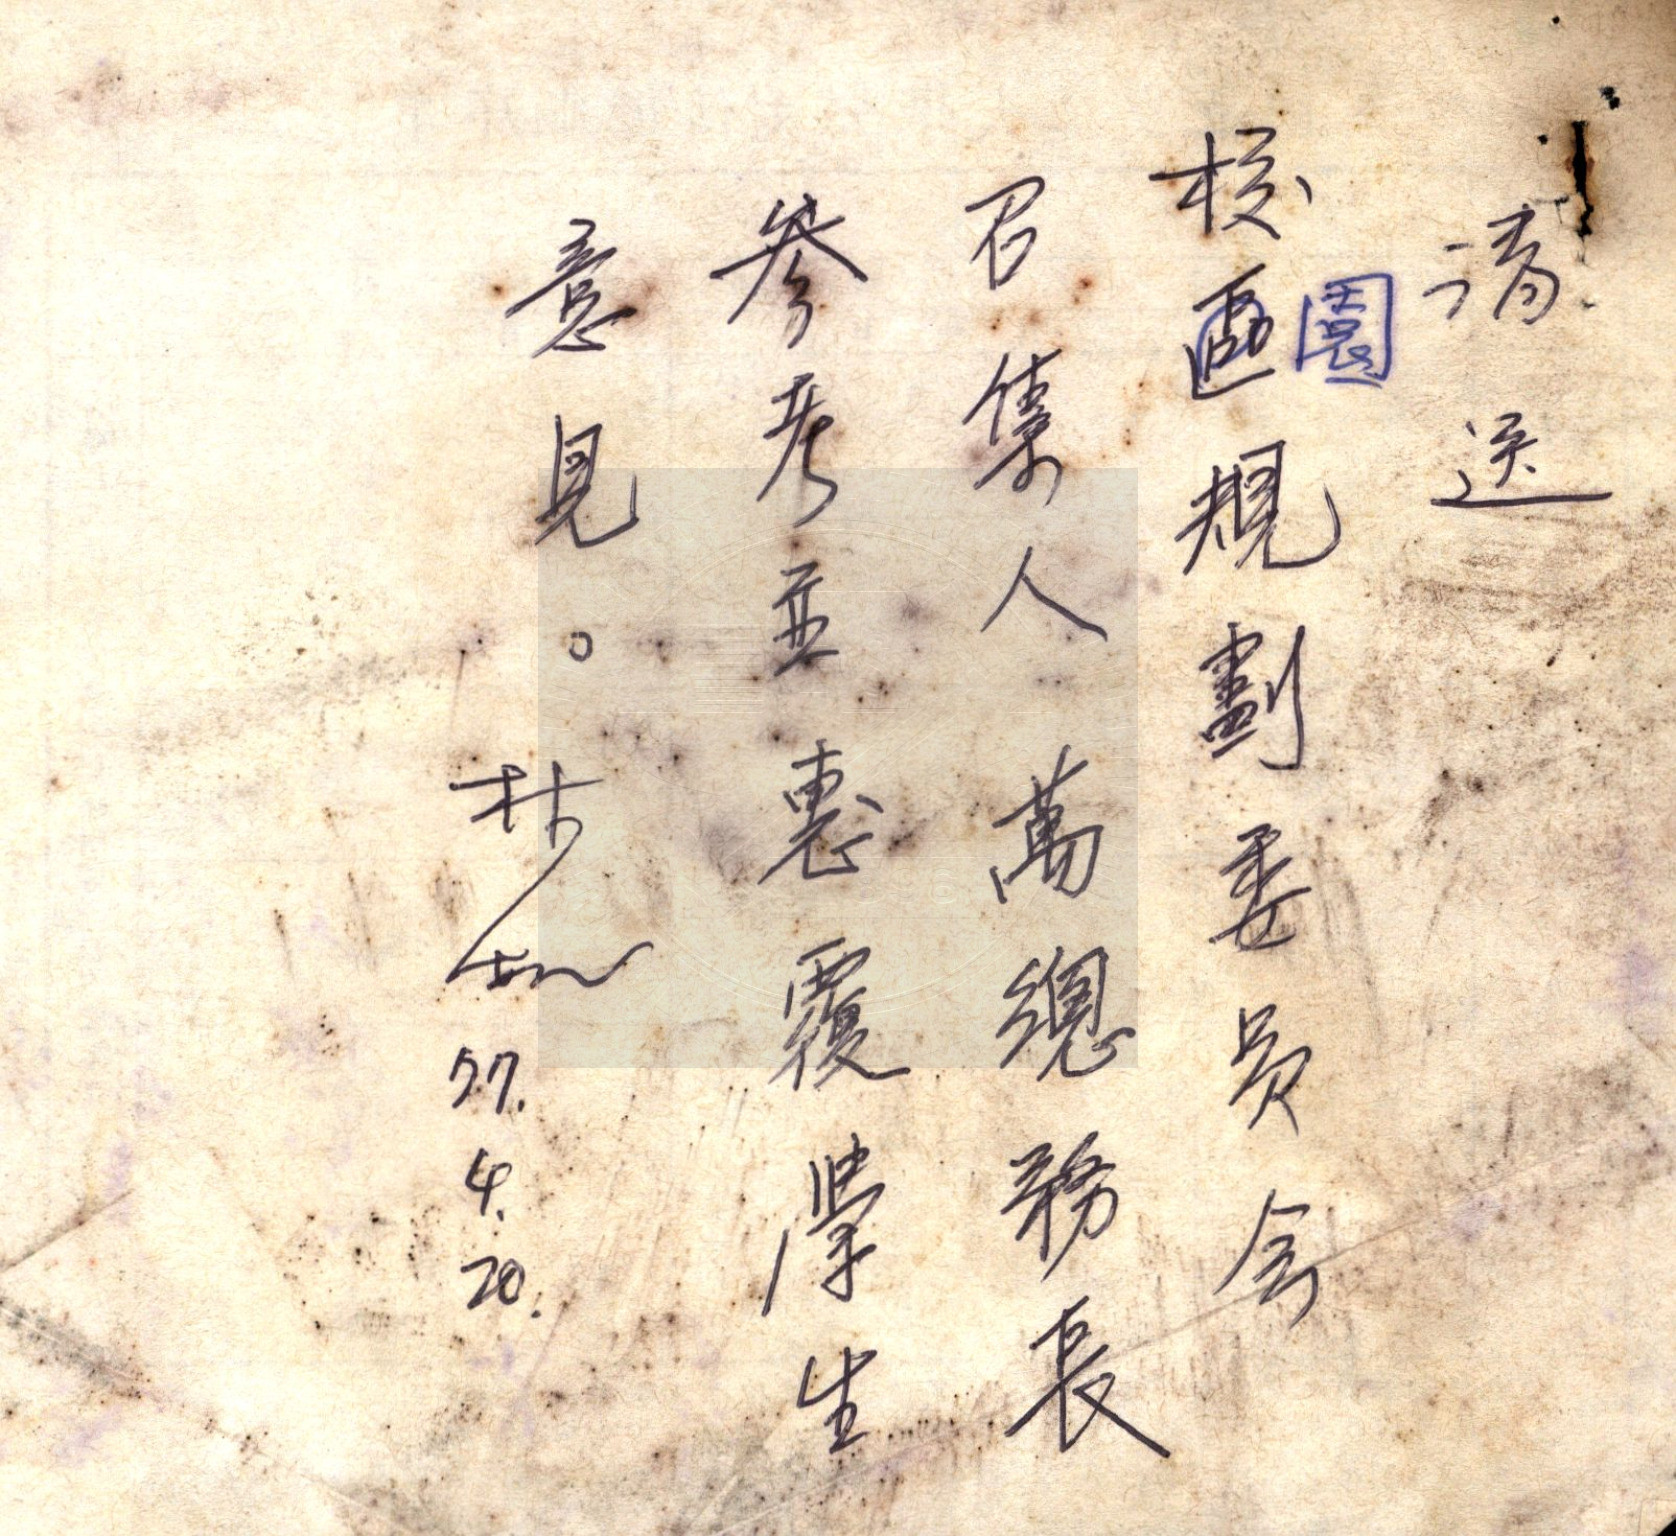 請送
校園區規劃委員会
召集人萬總務長
參考並惠覆學生
意見。
57.4.20.